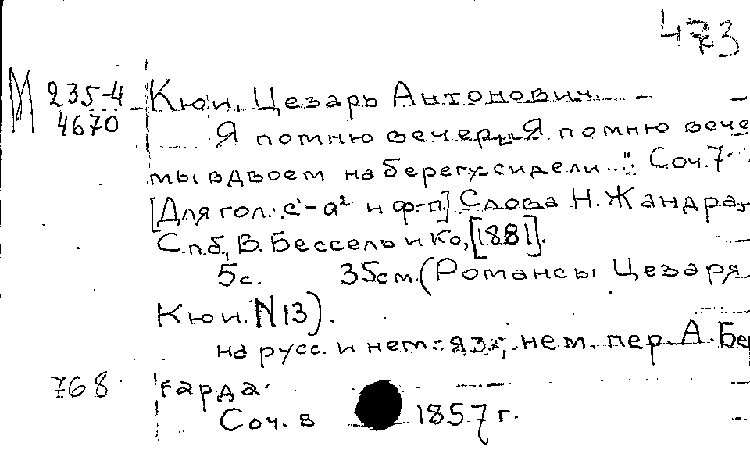 473
М 235-4 Кюи, Цезарь Антонович.
4670 Я помню вечер: „Я помню вече
мы вдвоем на берегу сидели..." Соч. 7
[Для гол. c¹-a² и ф-п] Слова Н. Жандра,
С.п.б, В. Бессель и Ко, [1881].
5с. 35см. (Романсы Цезаря
Кюи. N13).
на русс. и нем. яз; нем. пер. А. Бе
768 гарда.
Соч. в 1857 г.